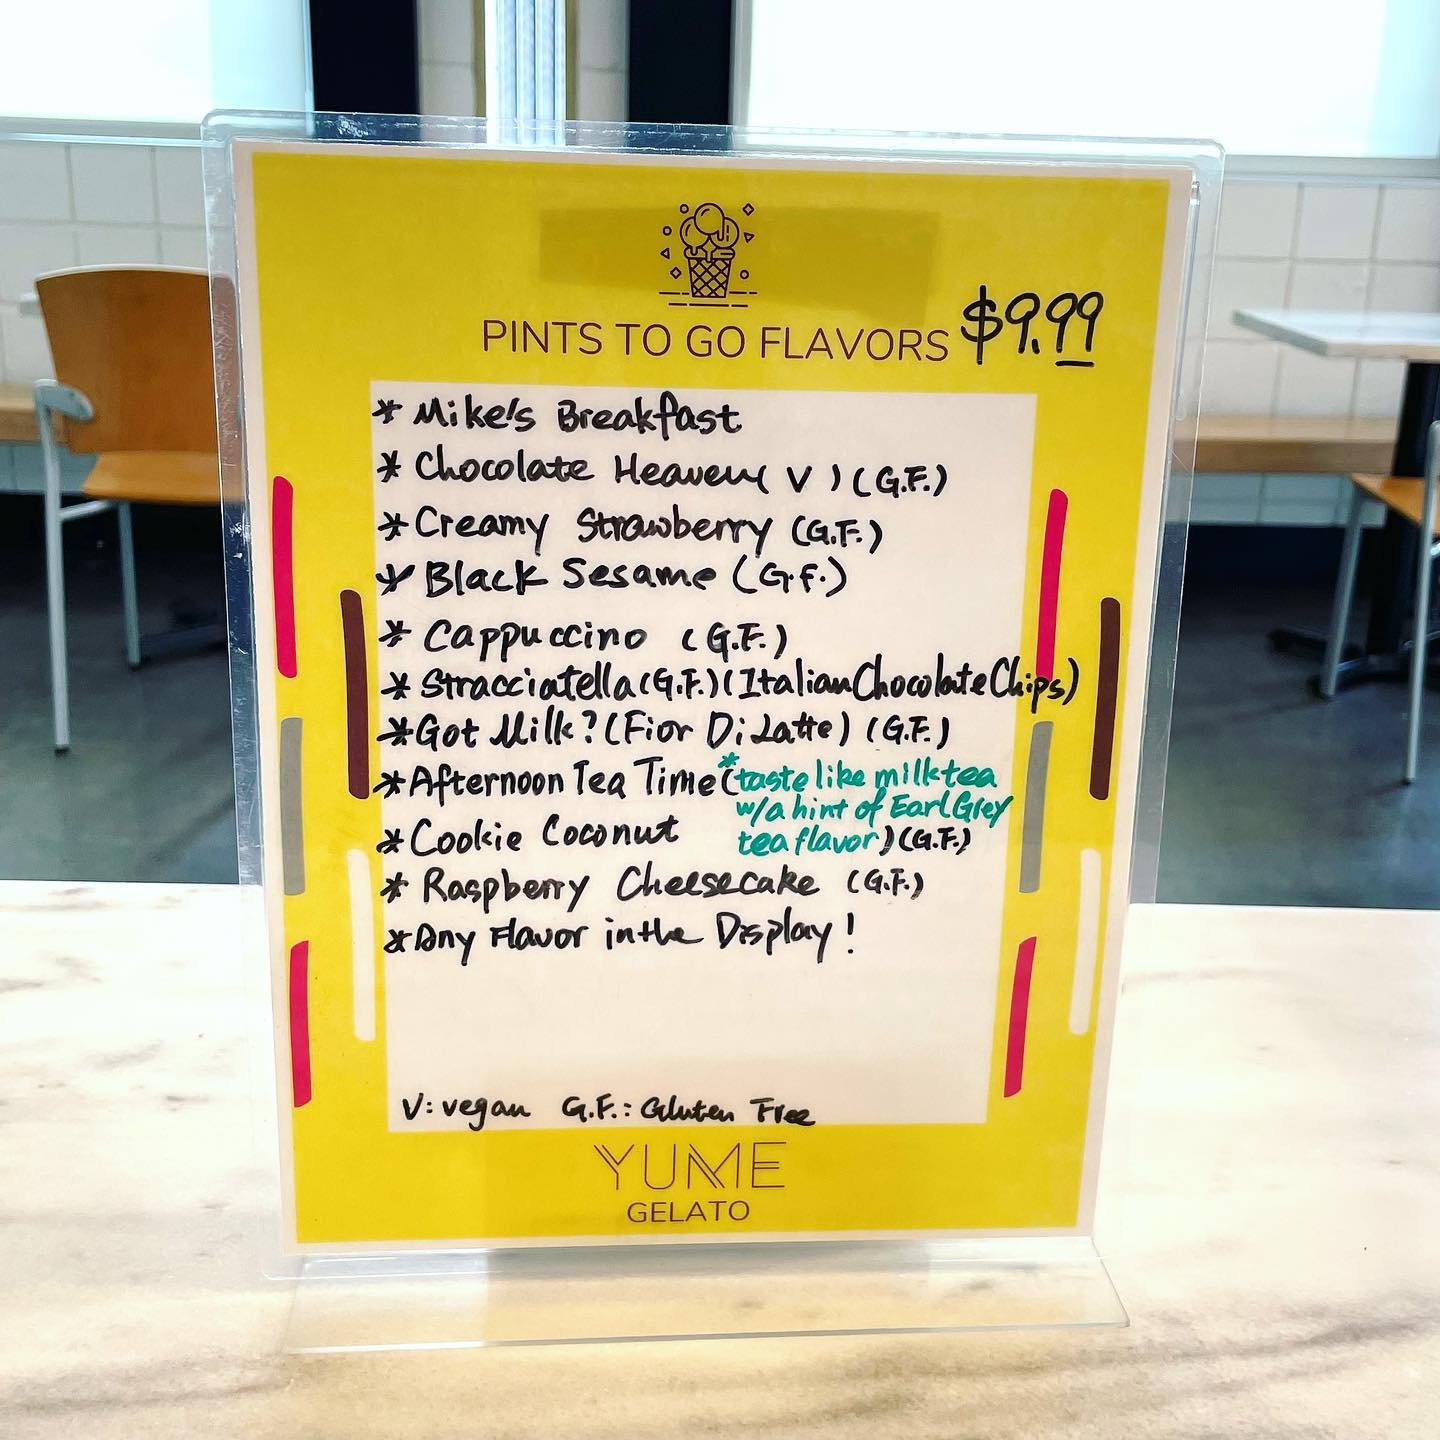 PINTS TO GO FLAVORS $9.99
* Mike's Breakfast
* Chocolate Heaven (V) (G.F.)
* Creamy Strawberry (G.F.)
* Black Sesame (G.F.)
* Cappuccino (G.F.)
* Stracciatella (G.F.) (Italian Chocolate Chips)
* Got Milk? (Fior Di Latte) (G.F.)
* Afternoon Tea Time (*taste like milk tea
w/a hint of Earl Grey
tea flavor) (G.F.)
* Cookie Coconut
* Raspberry Cheesecake (G.F.)
* Any Flavor in the Display!
V: vegan G.F.: Gluten Free
YUME
GELATO